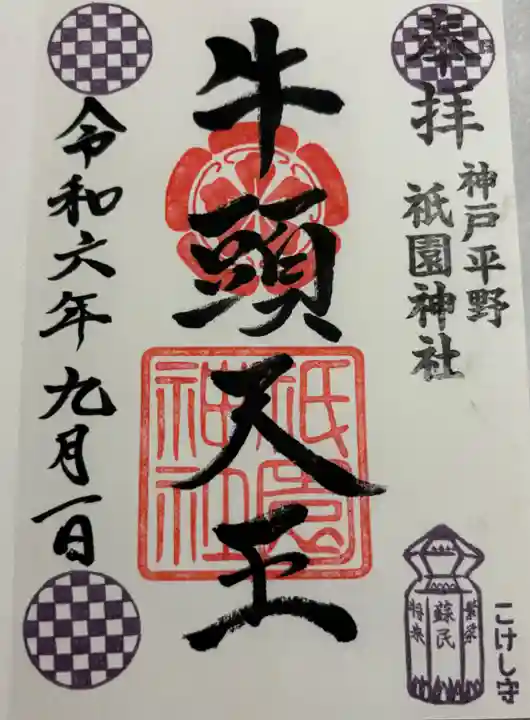 奉拝
神戸平野
祇園神社
牛頭天王
祇園
神社
令和六年九月一日
繁栄
蘇民
将来
こけし守